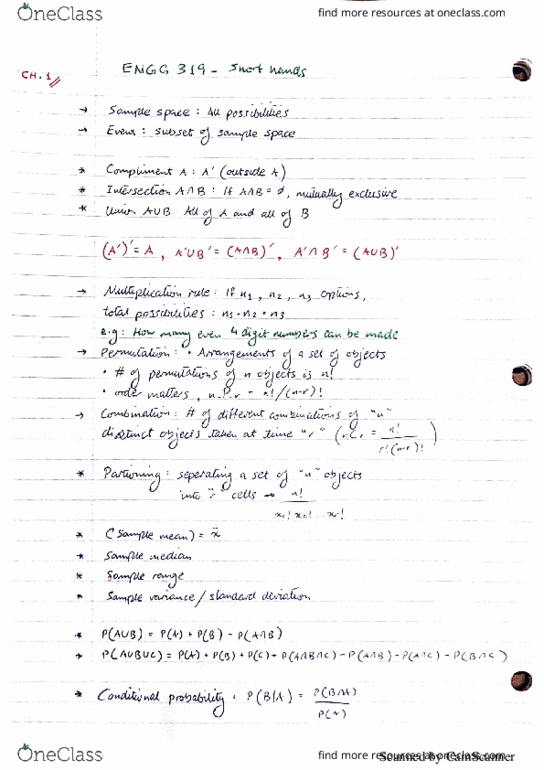 OneClass
find more resources at oneclass.com
ENGG 319 - Short hands
CH. 1
→ Sample space : All possibilities
→ Event : subset of sample space
* Compliment A : A' (outside A)
* Intersection A∩B : If A∩B = ∅, mutually exclusive
* Union A∪B : All of A and all of B
(A')' = A , A'∪B' = (A∩B)' , A'∩B' = (A∪B)'
→ Multiplication rule : If n₁ , n₂ , n₃ options,
total possibilities : n₁·n₂·n₃
e.g : How many even 4 digit numbers can be made
→ Permutation : • Arrangements of a set of objects
• # of permutations of n objects is n!
• order matters , nPr = n!/(n-r)!
→ Combination : # of different combinations of "n"
distinct objects taken at time "r" (nCr = n! / r!(n-r)!)
* Partioning : seperating a set of "n" objects
into "r" cells → n! / x₁! x₂! ... xr!
* (Sample mean) = x̄
* Sample median
* Sample range
* Sample variance / standard deviation
* P(A∪B) = P(A) + P(B) - P(A∩B)
* P(A∪B∪C) = P(A) + P(B) + P(C) + P(A∩B∩C) - P(A∩B) - P(A∩C) - P(B∩C)
* Conditional probability : P(B|A) = P(B∩A) / P(A)
OneClass
find more resources at oneclass.com
Scanned by CamScanner